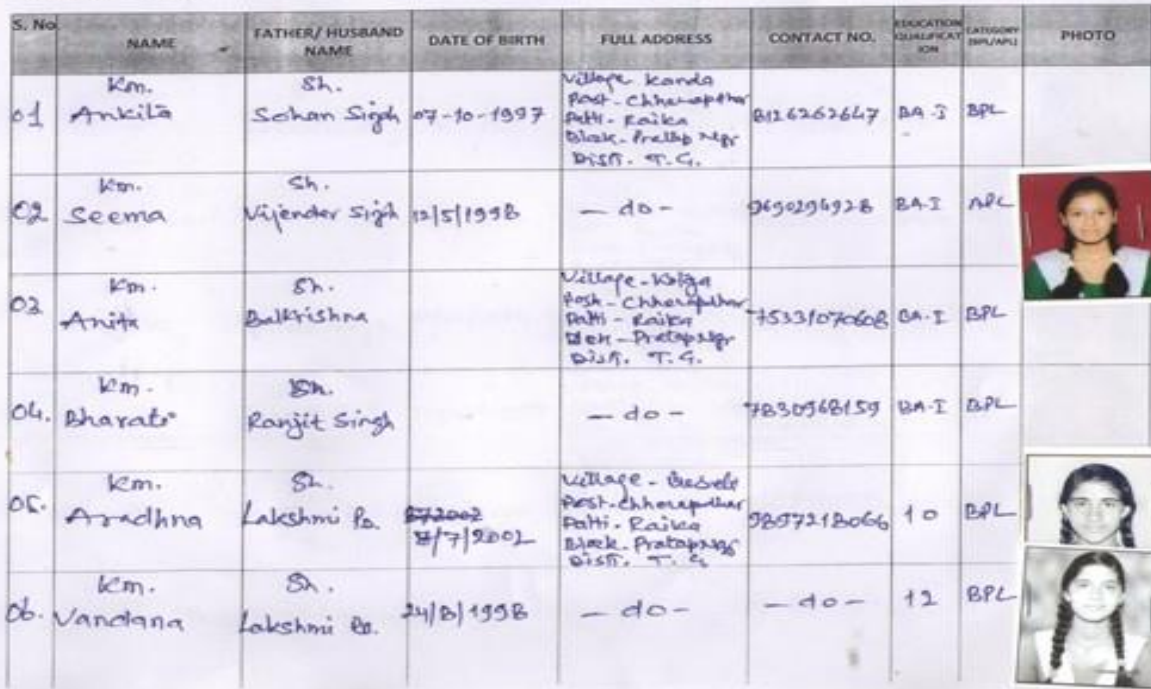 S. No. NAME FATHER/ HUSBAND NAME DATE OF BIRTH FULL ADDRESS CONTACT NO. EDUCATION QUALIFICATION CATEGORY (BPL/APL) PHOTO
01 Km. Ankita Sh. Sohan Singh 07-10-1997 Village Kanda
Post - Chherapdhar
Patti - Raika
Block - Pratap Ngr
Distt. T. G. 8126262647 BA-I BPL
02 Km. Seema Sh. Vijender Singh 12/5/1998 - do - 9690294928 BA-I APL
03 Km. Anita Sh. Balkrishna Village -
Post - Chherapdhar
Patti - Raika
Block - Pratap Ngr
Distt. T. G. 75331070608 BA-I BPL
04. Km. Bharati Sh. Ranjit Singh - do - 7830968159 BA-I BPL
05. Km. Aradhna Sh. Lakshmi Pd. 8/7/2002 Village -
Post - Chherapdhar
Patti - Raika
Block - Pratap Ngr
Distt. T. G 9897218066 10 BPL
06. Km. Vandana Sh. Lakshmi Pd. 24/8/1998 - do - - do - 12 BPL